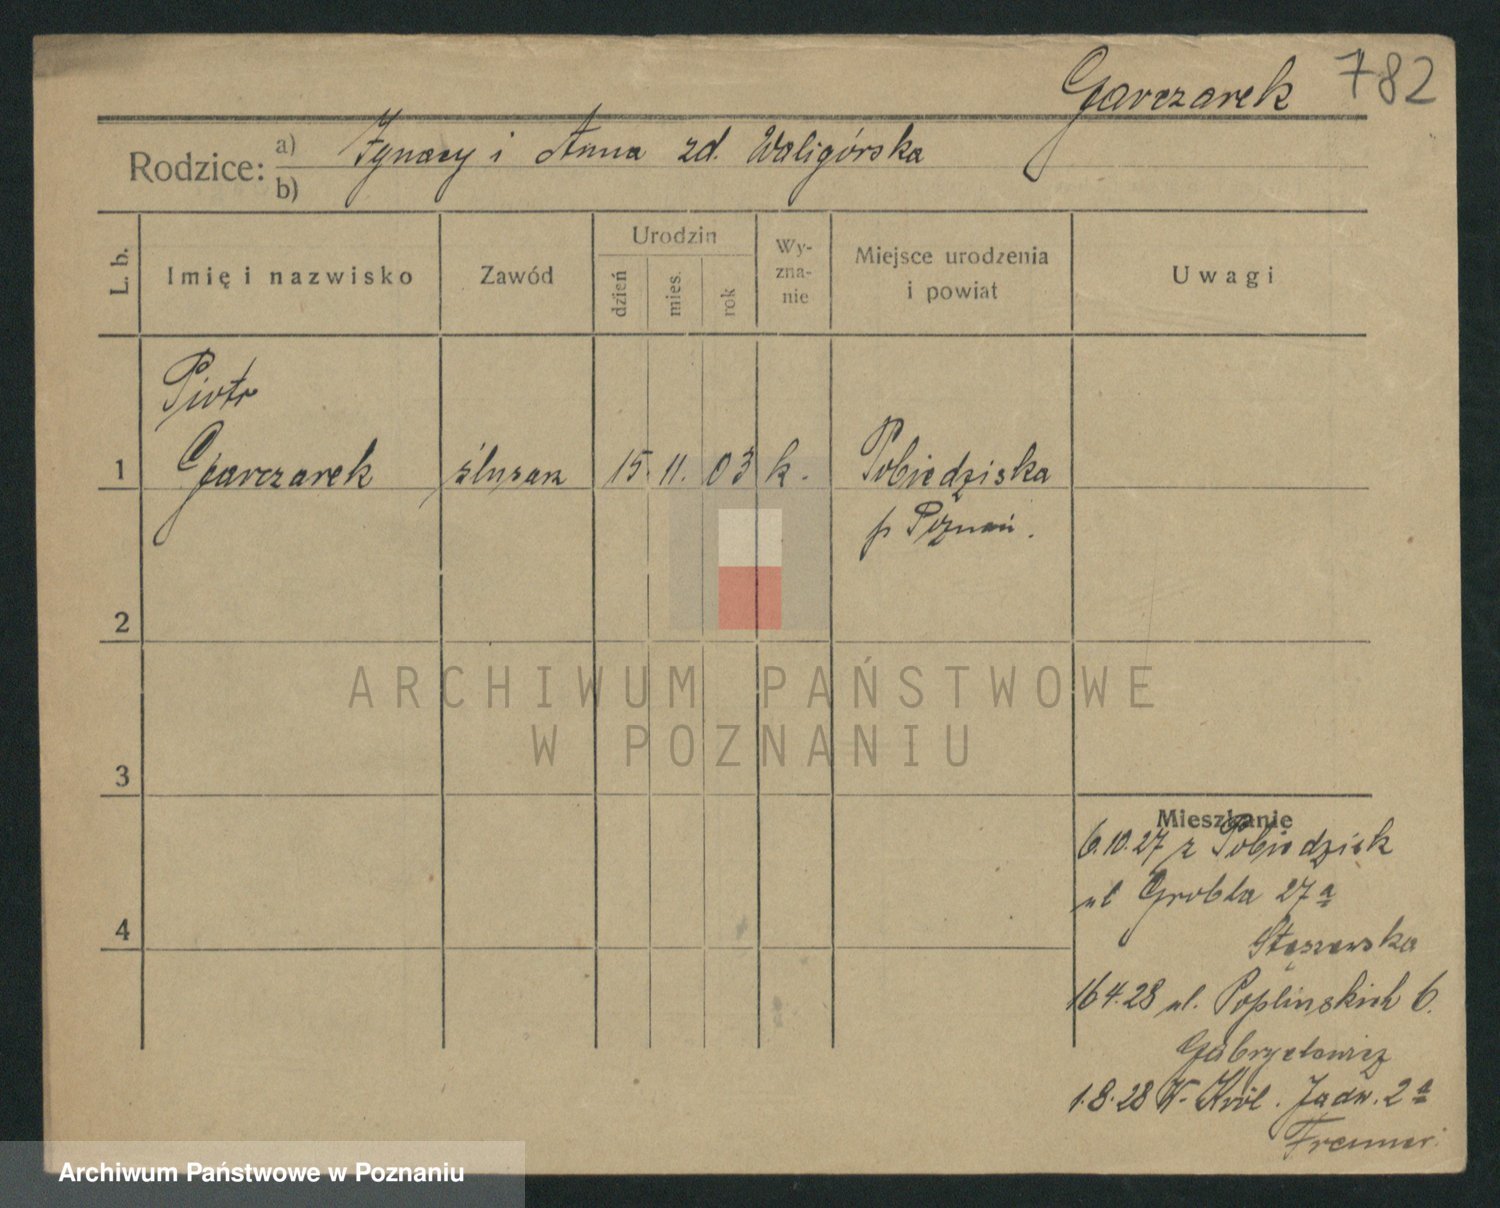 Garczarek 782
Rodzice: a) b) Ignacy i Anna zd. Waligórska
L. b. Imię i nazwisko Zawód Urodzin dzień mies. rok Wy-zna-nie Miejsce urodzenia i powiat Uwagi
Piotr
1 Garczarek ślusarz 15. 11. 03 k. Pobiedziska
p Poznań.
2
ARCHIWUM PAŃSTWOWE
W POZNANIU
3
Mieszkanie
6.10.27 z Pobiedzisk
ul Grobla 27a
4
Stęszewska
16 4.28 ul. Poplińskich 6.
Gabryelewicz
1.8.28 K. Król. Jadw. 2a
Archiwum Państwowe w Poznaniu